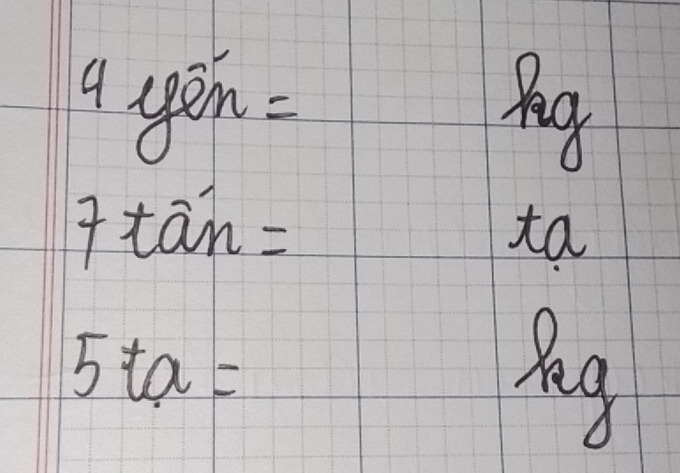 4 yến = kg
7 tấn = tạ
5 tạ = kg